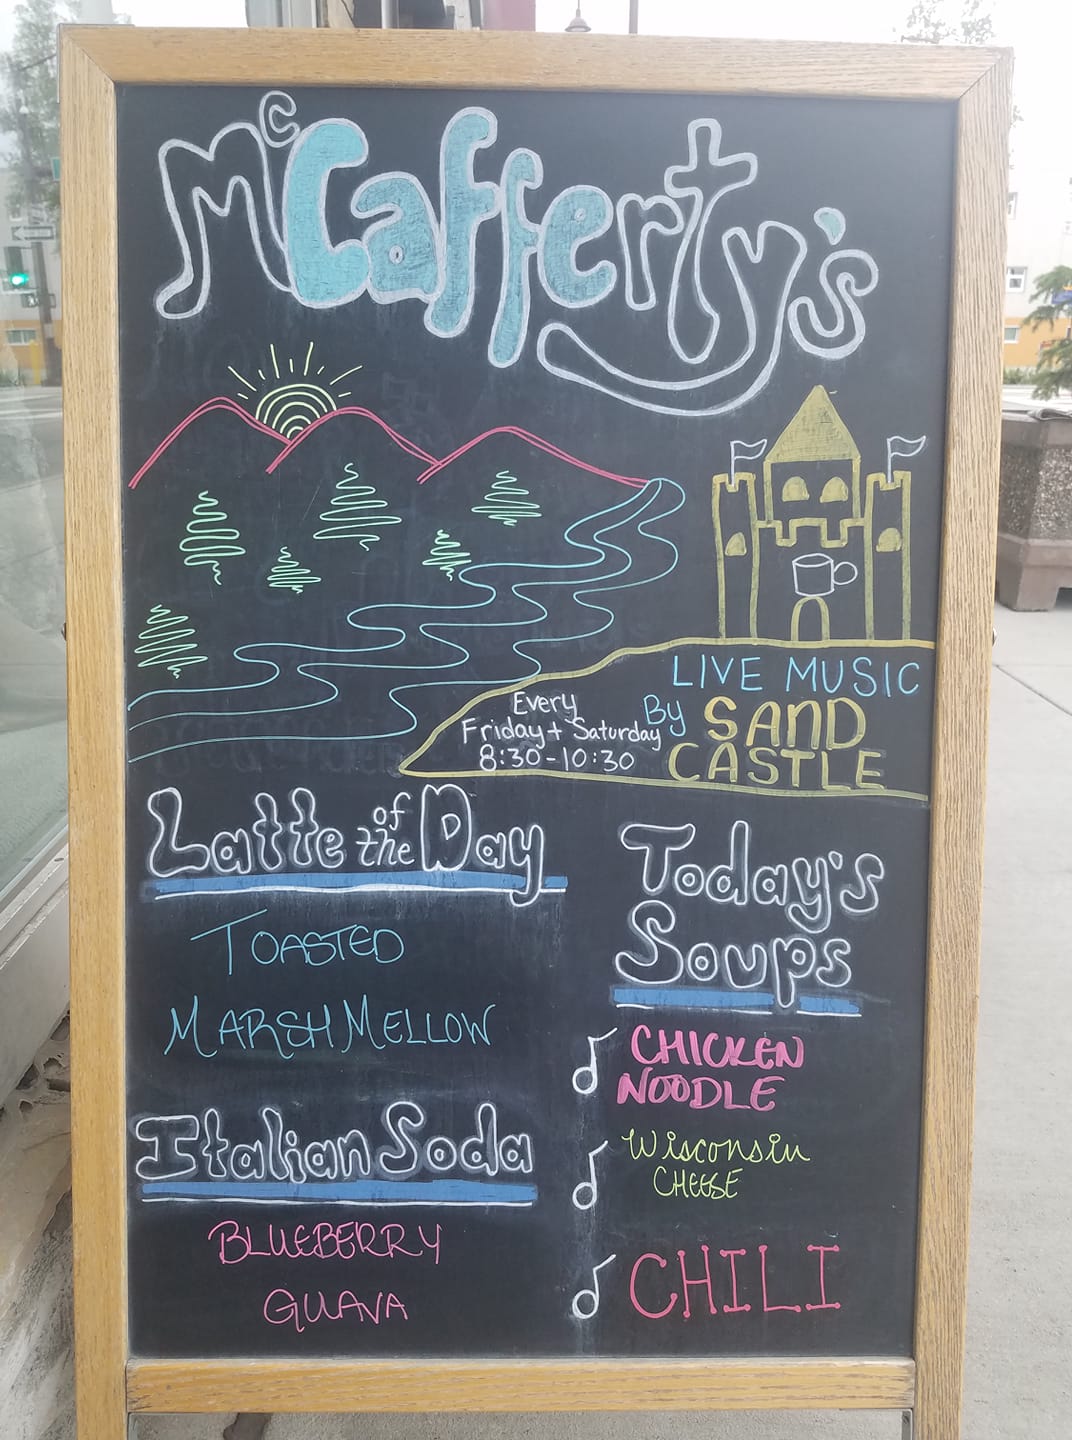 McCafferty's
LIVE MUSIC
By SAND
CASTLE
Every
Friday + Saturday
8:30-10:30
Latte of the Day
TOASTED
MARSHMELLOW
Italian Soda
BLUEBERRY
GUAVA
Today's
Soups
CHICKEN
NOODLE
Wisconsin
CHEESE
CHILI